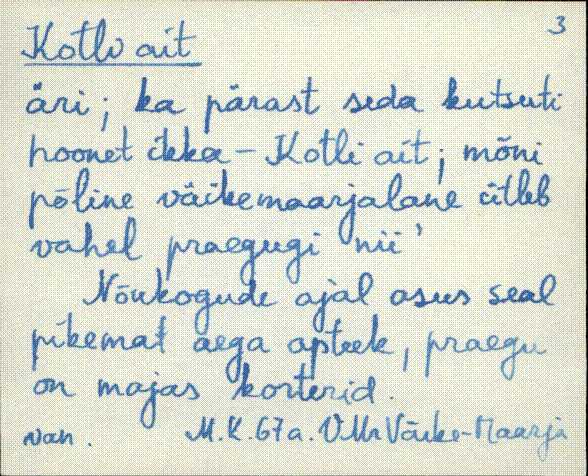 3
Kotli ait
äri; ka pärast seda kutsuti
hoonet ikka – Kotli ait; mõni
põline väikemaarjalane ütleb
vahel praegugi nii'
Nõukogude ajal asus seal
pikemat aega apteek, praegu
on majas korterid.
van. M.K. 67 a. VMr Väike-Maarja